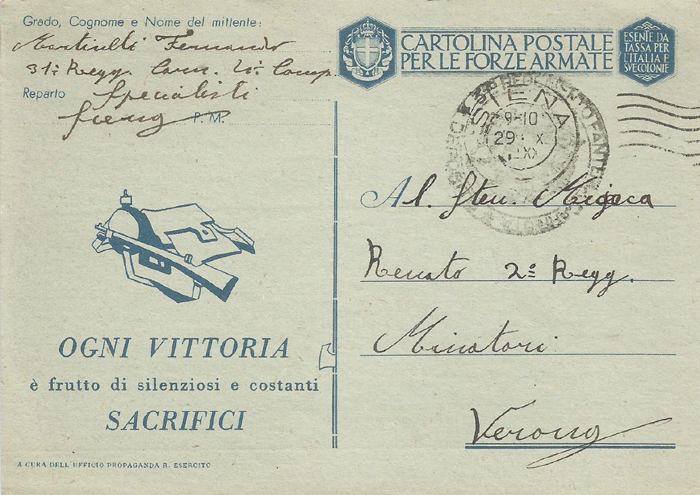 Grado, Cognome e Nome del mittente:
Martinelli Fernando
31º Regg. Carr. 10ª Comp.
Reparto Specialisti
Siena P. M.
CARTOLINA POSTALE
PER LE FORZE ARMATE
ESENTE DA
TASSA PER
L'ITALIA E
SVE COLONIE
SIENA
9-10
29 X
XX
Al Sten.
Renato 2º Regg.
Minatori
Verona
OGNI VITTORIA
è frutto di silenziosi e costanti
SACRIFICI
A CURA DELL'UFFICIO PROPAGANDA R. ESERCITO